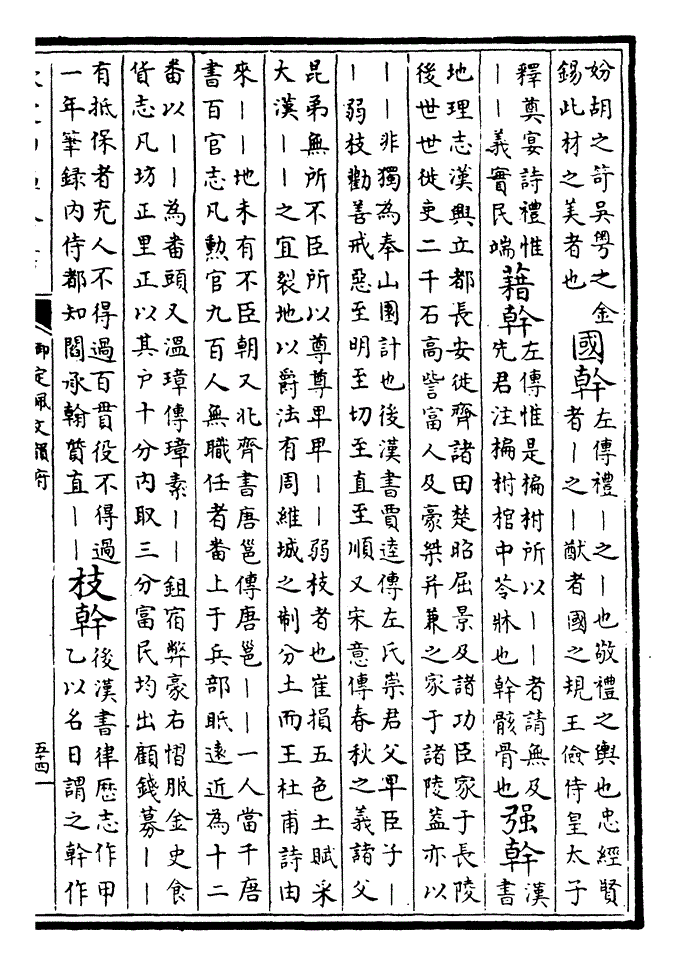 妢胡之笴吳粵之金
錫此材之美者也
國幹
左傳禮丨之丨也敬禮之輿也忠經賢
者丨之丨猷者國之規王儉侍皇太子
釋奠宴詩禮惟
丨丨義實民端
藉幹
左傳惟是楄柎所以丨丨者請無及
先君注楄柎棺中笭牀也幹骸骨也
强幹
漢
書
地理志漢興立都長安徙齊諸田楚昭屈景及諸功臣家于長陵
後世世徙吏二千石高訾富人及豪桀并兼之家于諸陵葢亦以
丨丨非獨為奉山園計也後漢書賈逵傳左氏崇君父卑臣子丨
丨弱枝勸善戒惡至明至切至直至順又宋意傳春秋之義諸父
昆弟無所不臣所以尊尊卑卑丨丨弱枝者也崔損五色土賦采
大漢丨丨之宜裂地以爵法有周維城之制分土而王杜甫詩由
來丨丨地未有不臣朝又北齊書唐邕傳唐邕丨丨一人當千唐
書百官志凡勳官九百人無職任者番上于兵部眂遠近為十二
番以丨丨為番頭又溫璋傳璋素丨丨鉏宿弊豪右慴服金史食
貨志凡坊正里正以其户十分內取三分富民均出顧錢募丨丨
有抵保者充人不得過百貫役不得過
一年筆録內侍都知閻承翰質直丨丨
枝幹
後漢書律歷志作甲
乙以名日謂之幹作
御定佩文韻府
五十四